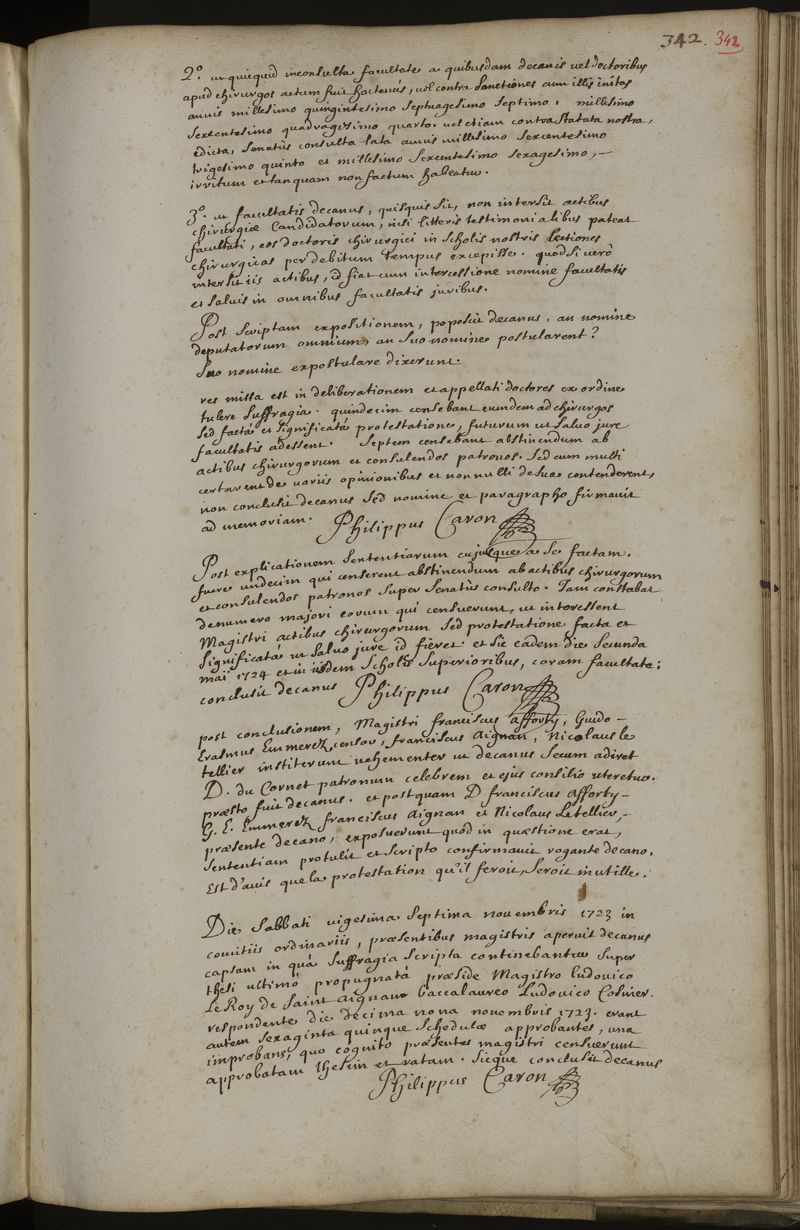 342. 342
2.° ut quicquid inconsulta facultate a quibusdam decanis vel doctoribus
apud chirurgos actum fuit hactenùs, vel contra sanctiones cum illis initas
annis millesimo quingintesimo septuagesimo septimo. millesimo
sexcentesimo quadragesimo quarto. vel etiam contra statata nostra,
edicta, senatûs consulta lata annis millesimo sexcentesimo
trigesimo quinto et millesimo sexcentesimo sexagesimo, —
irritum et tanquam non factum habeatur.
3.° ut facultatis decanus, quisquis sit, non intersit actibus
chirurgiæ candidatorum, nisi litteris testimonialibus pateat
facultati, eos doctoris chirurgici in scholis nostris lectiones
chirurgicas per debitum tempus excepisse. quod si verò
intersit iis actibus, id fiat cum intercessione nomine facultatis
et salvis in omnibus facultatis juribus.
Post scriptam expositionem, poposcit decanus, an nomine
deputatorum omnium, an suo nomine postularent?
suo nomine expostulare dixerunt.
res missa est in deliberationem et appellati doctores ex ordine
tulere suffragia. quindecim censebant eundem ad chirurgos
sed factâ et significatâ protestatione, futurum ut salvo jure
facultatis adessent. septem censebant abstinendum ab
actibus chirurgorum et consulendos patronos. sed cum multi
certarent de variis opinionibus et nonnulli de sua contenderent,
non conclusit decanus sed nomine et paragrapho firmavit
ad memoriam. Philippus Caron
Post explicationem sententiarum cujusque a se factam.
fuere undecim qui censerent abstinendum ab actibus chirurgorum
et consulendos patronos super senatûs consulto. Jam constabat
de numero majori eorum qui censuerunt, ut interessent
Magistri actibus chirurgorum sed protestatione facta et
significatâ ut salvo jure id fieret. et sic eadem die secunda
maii 1724 et in iisdem scholis superioribus, coram facultate:
conclusit decanus Philippus Caron
post conclusionem, Magistri franciscus afforty, Guido —
Erasmus Emmerez, censor, franciscus aignan, Nicolaus le
tellier institerunt vehementer ut decanus secum adiret
D. du Cornet patronum celebrem et ejus consilio uteretur.
præsto fuit decanus. et postquam D franciscus Afforty —
G. E. Emmerez franciscus Aignan et Nicolaus Letellier, —
præsente decano, exposuerunt quod in quæstione erat,
sententiam protulit et scripto confirmavit rogante decano.
Est d'avis que la protestation qu'il feroit, seroit inutille.
Die sabbati vigesima septima novembris 1723 in
comitiis ordinariis, præsentibus magistris aperuit decanus
capsam in quâ suffragia scripta continebantur super
thesi ultimò propugnatâ præside Magistro ludovico
Le Roy de Saint aignan baccalaureo Ludovico Cosnier.
respondente die decima nona novembris 1723. erant
autem sexaginta quinque schedulæ approbantes, una
improbans, quo cognito præsentes magistri censuerunt
approbatam thesim et ratam. sicque conclusit decanus
Philippus Caron